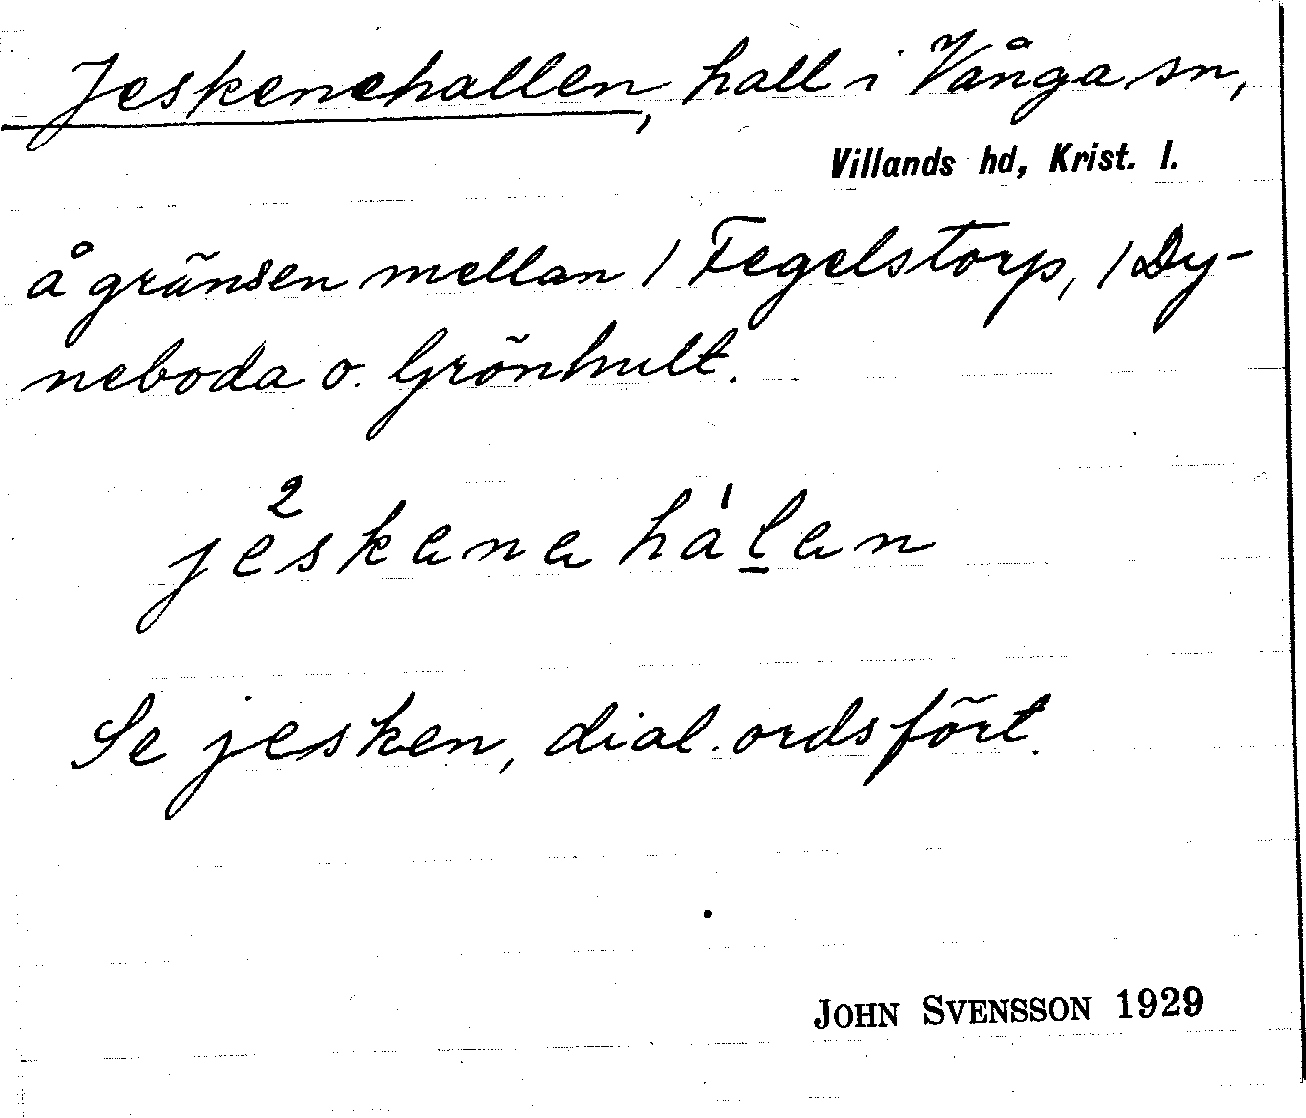 Jeskenehallen, hall i Vånga sn,
Villands hd, Krist. l.
å gränsen mellan / Fegelstorp, / Dy-
neboda o. Grönhult.
je²skena há¹l̲an
Se jesken, dial. ordsfört.
JOHN SVENSSON 1929